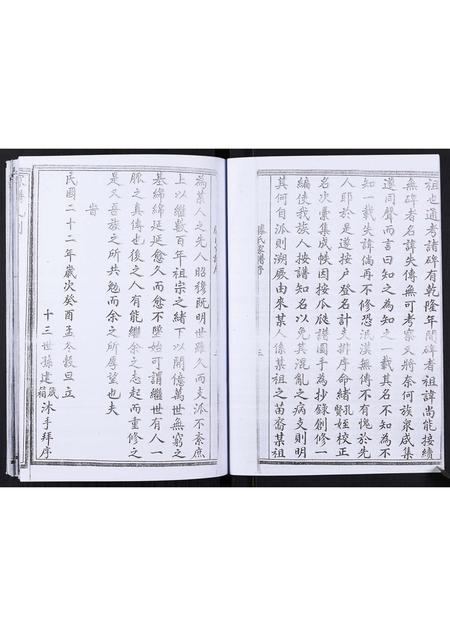 祖也通考諸碑有乾隆年間碑者祖諱尚能接續
無碑者名諱失傳無可考察又將奈何族衆咸集
遵同聲而言曰知之為知之一載其名不知為不
知一載失諱倘再不修恐泯漠無傳不有愧於先
人耶於是遂按户登名計支排序命緒姪校正
名次彙集成帙因按瓜瓞譜圖手為抄錄創修一
編使我族人按譜知名以免其混亂之病支則明
其何自派則溯厥由來某人係某祖之苗裔某祖
滕氏家譜序
三
為某人之先人昭穆既明世雖久而支派不紊庶
上以繼數百年祖宗之緒下以開億萬世無窮之
基綿綿延延愈久而愈不墜始可謂繼世有人一
脈之真傳也後之人有能繼余之志起而重修之
是又吾族之所共勉而余之所厚望也夫
旹
民國二十二年歲次癸酉孟冬穀旦立
十三世孫建箴箱沐手拜序